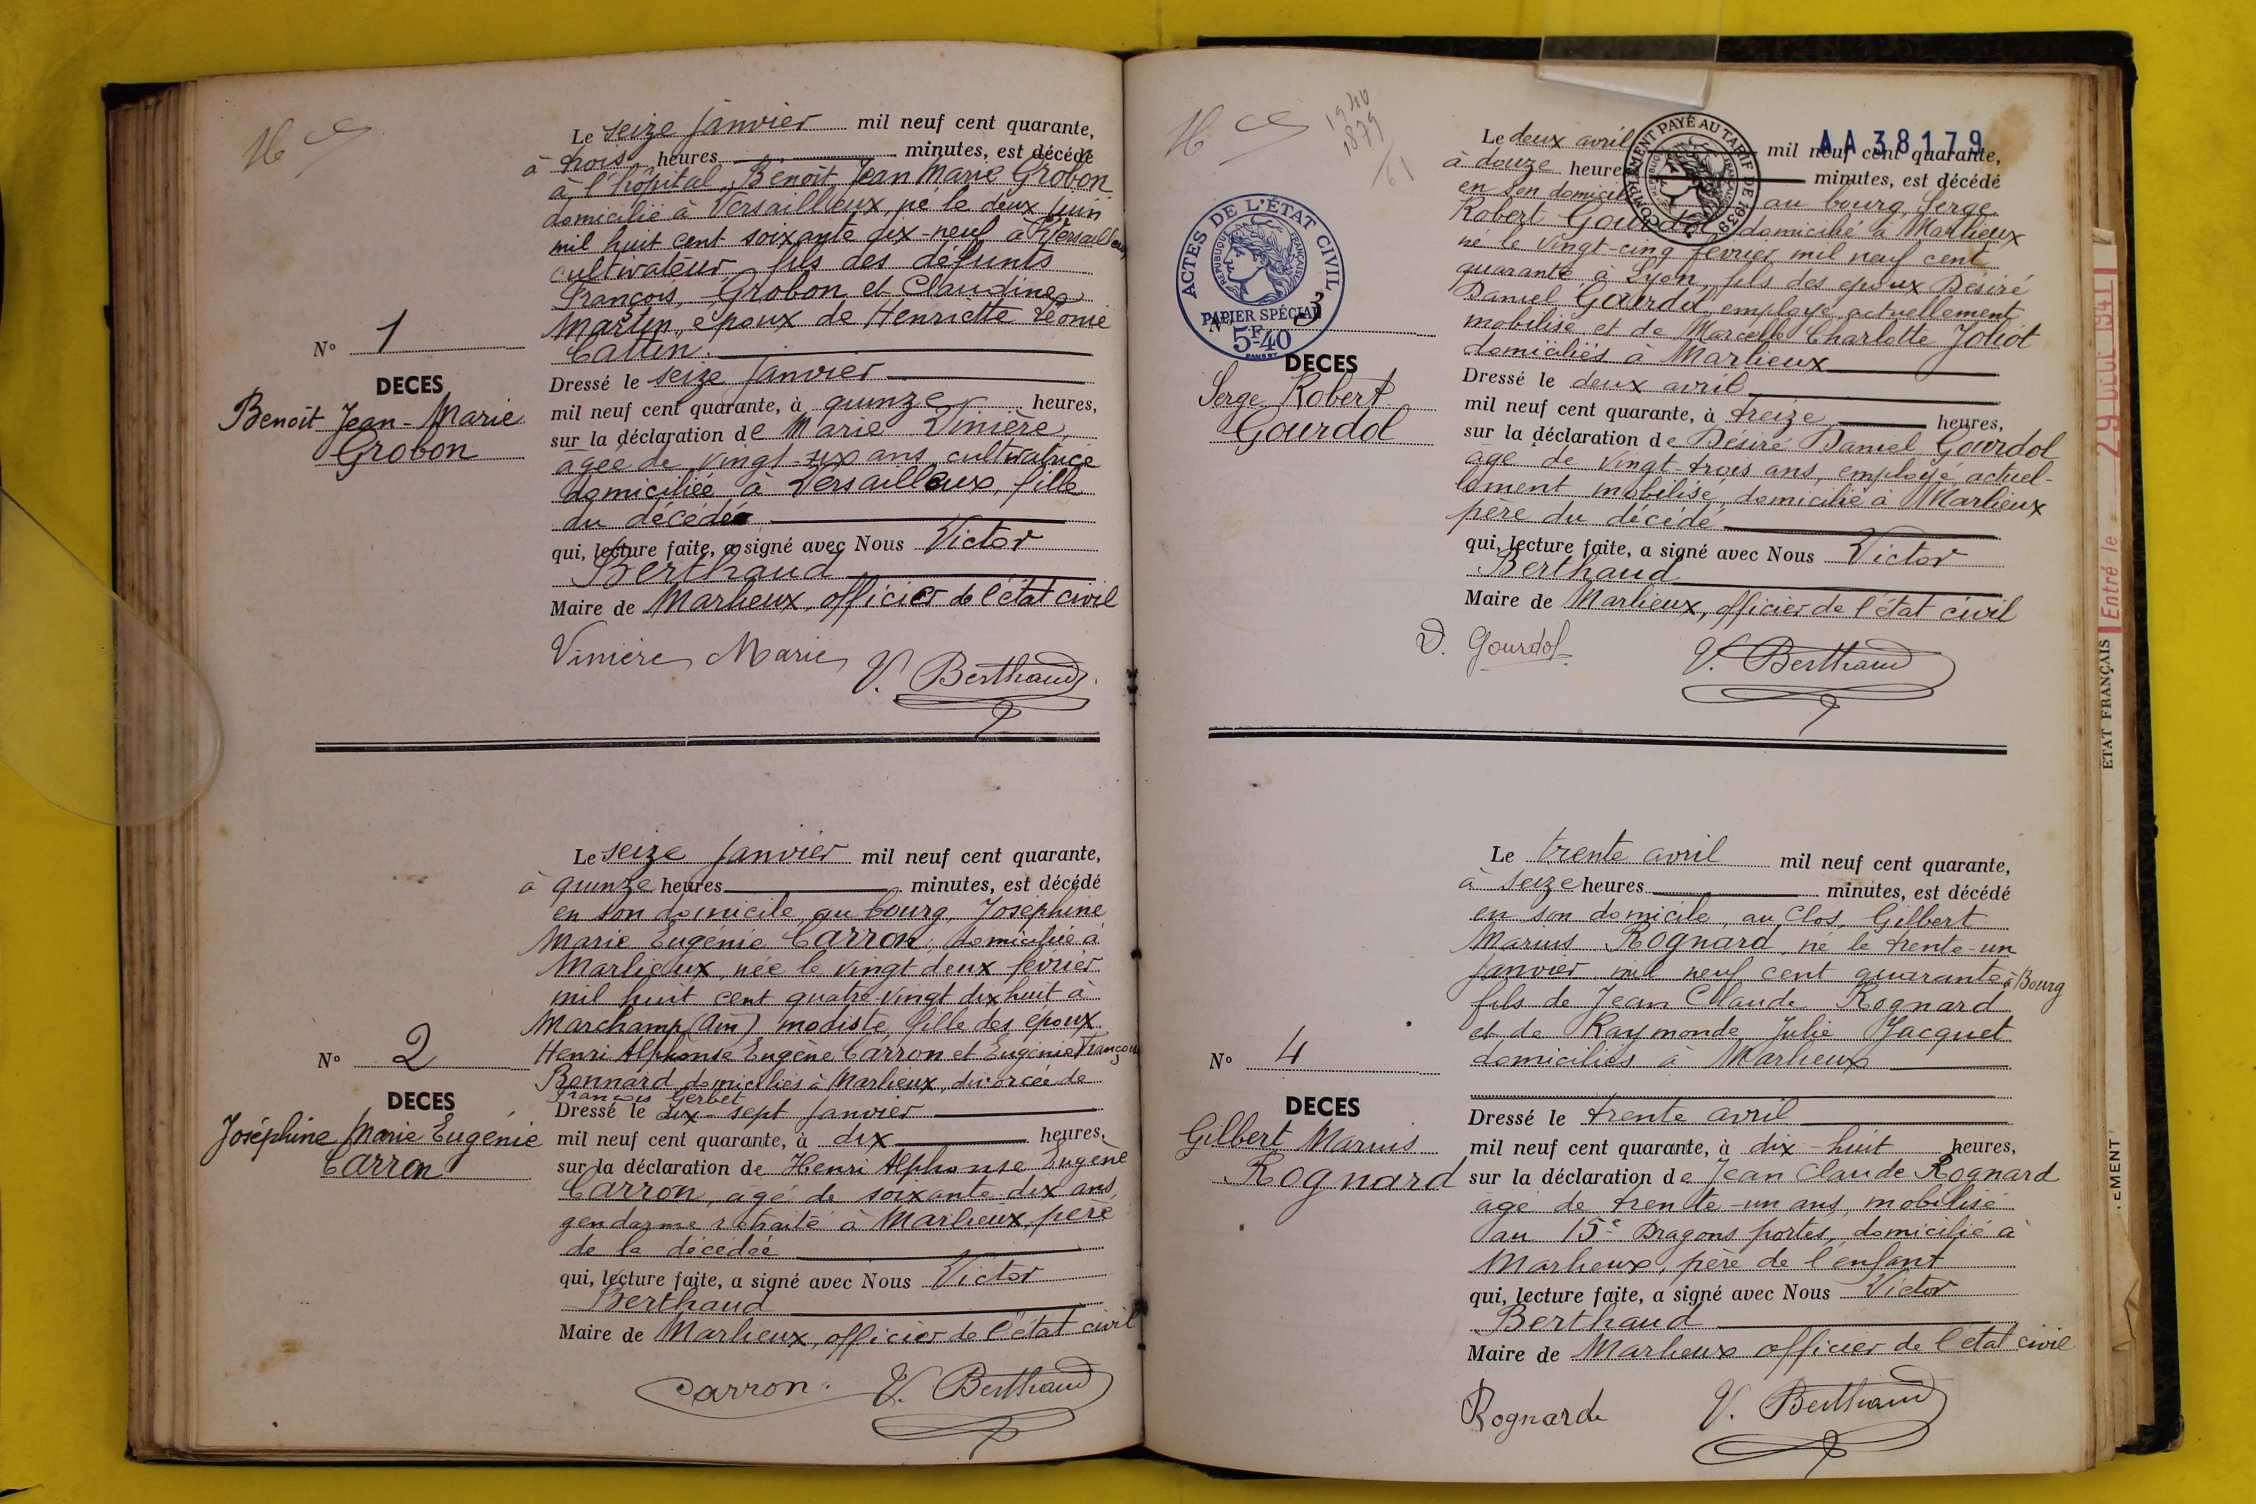 Le seize janvier mil neuf cent quarante,
à trois heures minutes, est décédé
à l'hôpital, Benoit Jean Marie Grobon
domicilié à Versailleux, né le deux juin
mil huit cent soixante dix-neuf à Versailleux
cultivateur, fils des défunts
François Grobon et Claudine
Martin, époux de Henriette Léonie
Cattin.
N° 1
DECES
Benoit Jean-Marie
Grobon
Dressé le seize janvier
mil neuf cent quarante, à quinze heures,
sur la déclaration de Marie Vinière,
âgée de vingt-six ans, cultivatrice
domiciliée à Versailleux, fille
du décédé
qui, lecture faite, a signé avec Nous Victor
Berthaud
Maire de Marlieux, officier de l'état civil
Vinière Marie V. Berthaud
Le seize janvier mil neuf cent quarante,
à quinze heures minutes, est décédé
en son domicile au bourg, Joséphine
Marie Eugénie Carron, domiciliée à
Marlieux, née le vingt deux février
mil huit cent quatre-vingt dix huit à
Marchamp (Ain) modiste, fille des époux
Henri Alphonse Eugène Carron et Eugénie Françoise
Bonnard domiciliés à Marlieux, divorcée de
François Gerbet
N° 2
DECES
Joséphine Marie Eugénie
Carron
Dressé le dix-sept janvier
mil neuf cent quarante, à dix heures,
sur la déclaration de Henri Alphonse Eugène
Carron, âgé de soixante-dix ans,
gendarme retraité à Marlieux, père
de la décédée
qui, lecture faite, a signé avec Nous Victor
Berthaud
Maire de Marlieux, officier de l'état civil
Carron. V. Berthaud
1940
1879
/61
AA 38179
COMPLEMENT PAYÉ AU TARIF DE 1939
Le deux avril mil neuf cent quarante,
à douze heures minutes, est décédé
en son domicile au bourg, Serge
Robert Gourdol domicilié à Marlieux
né le vingt-cinq février mil neuf cent
quarante à Lyon, fils des époux Désiré
Daniel Gourdol, employé actuellement
mobilisé et de Marcelle Charlotte Joliot
domiciliés à Marlieux
ACTES DE L'ÉTAT CIVIL
RÉPUBLIQUE FRANÇAISE
PAPIER SPÉCIAL
5F40
N° 3
DECES
Serge Robert
Gourdol
Dressé le deux avril
mil neuf cent quarante, à treize heures,
sur la déclaration de Désiré Daniel Gourdol
âgé de vingt-trois ans, employé, actuel-
lement mobilisé, domicilié à Marlieux
père du décédé
qui, lecture faite, a signé avec Nous Victor
Berthaud
Maire de Marlieux, officier de l'état civil
D. Gourdol V. Berthaud
Le trente avril mil neuf cent quarante,
à seize heures minutes, est décédé
en son domicile, au Clos, Gilbert
Marius Rognard, né le trente-un
janvier mil neuf cent quarante à Bourg
fils de Jean Claude Rognard
et de Raymonde Julie Jacquet
domiciliés à Marlieux
N° 4
DECES
Gilbert Marius
Rognard
Dressé le trente avril
mil neuf cent quarante, à dix-huit heures,
sur la déclaration de Jean Claude Rognard
âgé de trente-un ans, mobilisé
au 15e Dragons portés, domicilié à
Marlieux, père de l'enfant
qui, lecture faite, a signé avec Nous Victor
Berthaud
Maire de Marlieux officier de l'état civil
Rognard V. Berthaud
ETAT FRANÇAIS
Entré le 29 DECE 1941
EMENT